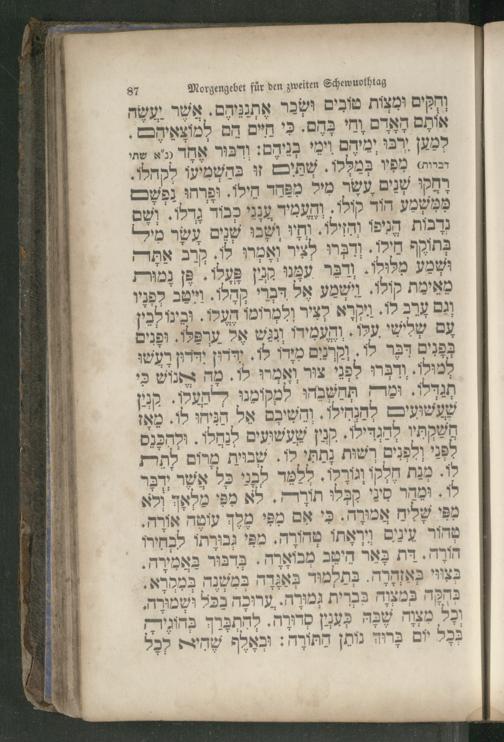 87 Morgengebet für den zweiten Schewuothtag
וְחֻקִּים וּמִצְוֹת טוֹבִים וּשְׂכַר אֶתְנַנֵּיהֶם. אֲשֶׁר יַעֲשֶׂה
אוֹתָם הָאָדָם וָחַי בָּהֶם. כִּי חַיִּים הֵם לְמוֹצָאֵיהֶם.
לְמַעַן יִרְבּוּ יְמֵיהֶם וִימֵי בְנֵיהֶם: וְדִבּוּר אֶחָד (נ״א שתי
דברות) מִפִּיו בְּמַלְּלוֹ. שְׁתַּיִם זוּ בְּהַשְׁמִיעוֹ לִקְהָלוֹ.
רָחֲקוּ שְׁנֵים עָשָׂר מִיל מִפַּחַד חֵילוֹ. וּפָרְחוּ נַפְשָׁם
מִמִּשְׁמַע הוֹד קוֹלוֹ. וְהֶעֱמִיד עֲנָנֵי כְבוֹד גָּדְלוֹ. וְשָׁם
נְדָבוֹת הֵנִיפוֹ וְהִזִּילוֹ. וְחָיוּ וְשָׁבוּ שְׁנֵים עָשָׂר מִיל
בְּתוֹקֶף חֵילוֹ. וְדִבְּרוּ לְצִיר וְאָמְרוּ לוֹ. קְרַב אַתָּה
וּשְׁמַע מִלּוּלוֹ. וְדַבֵּר עִמָּנוּ קִנְיַן פָּעֳלוֹ. פֶּן נָמוּת
מֵאֵימַת קוֹלוֹ. וַיִּשְׁמַע אֶל דִּבְרֵי קְהָלוֹ. וַיִּיטַב לְפָנָיו
וְגַם עָרַב לוֹ. וַיִּקְרָא לְצִיר וְלִמְרוֹמוֹ הֶעֱלוֹ. וּבֵינוֹ לְבֵין
עַם שְׁלִישִׁי עִלּוֹ. וְהֶעֱמִידוֹ וְנִגַּשׁ אֶל עֲרָפֶלּוֹ. וּפָנִים
בְּפָנִים דִּבֶּר לוֹ. וְקַרְנַיִם מִיָּדוֹ לוֹ. יִדּוֹדוּן יִדּוֹדוּן רָעֲשׁוּ
לְמוּלוֹ. וְדִבְּרוּ לִפְנֵי צוּר וְאָמְרוּ לוֹ. מָה אֱנוֹשׁ כִּי
תְגַדְּלוֹ. וּמַה תַּחְשְׁבֵהוּ לִמְקוֹמֵנוּ לְהַעֲלוֹ. קִנְיַן
שַׁעֲשׁוּעִים לְהַנְחִילוֹ. וְהֵשִׁיבָם אֵל הַנִּיחוּ לוֹ. מֵאָז
חֲשַׁקְתִּיו לְהַגְדִּילוֹ. קִנְיַן שַׁעֲשׁוּעִים לְנַחֲלוֹ. וּלְהִכָּנֵס
לִפְנַי וְלִפְנִים רְשׁוּת נָתַתִּי לוֹ. שִׁבּוּיַת מָרוֹם לָתֵת
לוֹ. מְנַת חֶלְקוֹ וְגוֹרָלוֹ. לְלַמֵּד לְבָנַי כָּל אֲשֶׁר יְדֻבַּר
לוֹ. וּמֵהַר סִינַי קִבְּלוּ תוֹרָה. לֹא מִפִּי מַלְאָךְ וְלֹא
מִפִּי שָׁלִיחַ אֲמוּרָה. כִּי אִם מִפִּי מֶלֶךְ עוֹטֶה אוֹרָה.
טְהוֹר עֵינַיִם וְיִרְאָתוֹ טְהוֹרָה. מִפִּי גְבוּרָתוֹ לִבְחִירוֹ
הוֹרָה. דָּת בָּאֵר הֵיטֵב מְבוֹאָרָה. בְּדִבּוּר בַּאֲמִירָה.
בְּצִוּוּי בְּאַזְהָרָה. בְּתַלְמוּד בְּאַגָּדָה בְּמִשְׁנָה בְּמִקְרָא.
בְּחֻקָּה בְּמִצְוָה בִּבְרִית גְּמוּרָה. עֲרוּכָה בַכֹּל וּשְׁמוּרָה.
וְכָל מִצְוָה שֶׁבָּהּ בְּעִנְיָן סְדוּרָה. לְהִתְבָּרַךְ בְּהוֹגֶיהָ
בְּכָל יוֹם בָּרוּךְ נוֹתֵן הַתּוֹרָה: וּבְאָלֶף שֶׁהִיא לְכָל